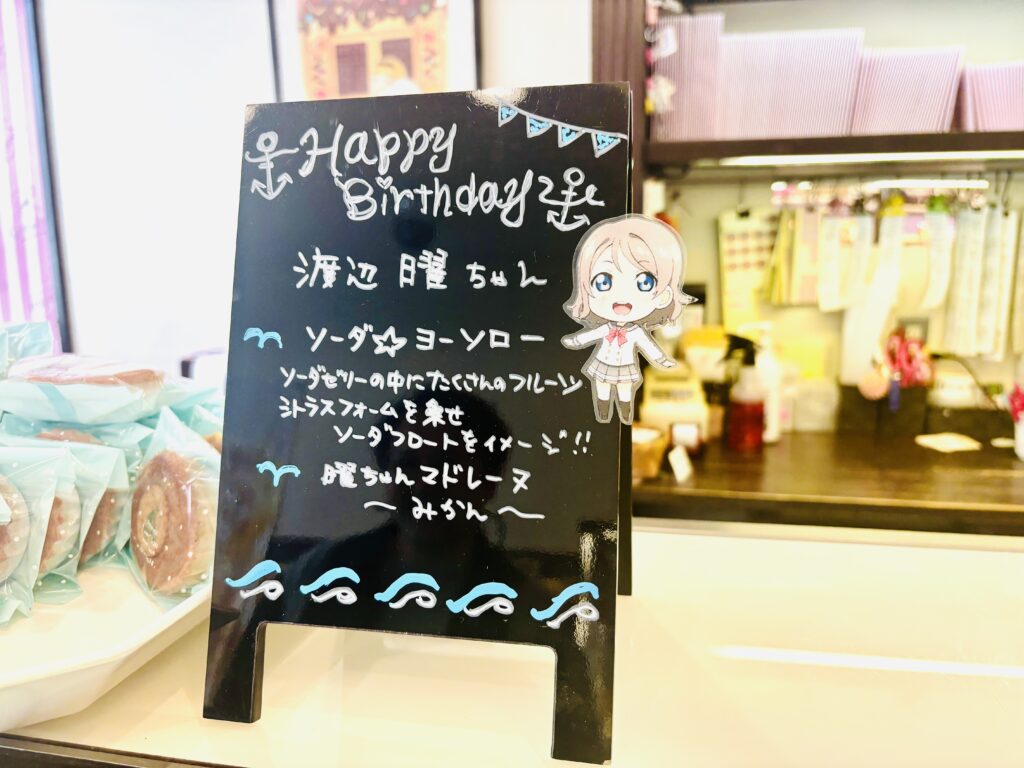 Happy
Birthday
渡辺 曜 ちゃん
ソーダ☆ヨーソロー
ソーダゼリーの中にたくさんのフルーツ
シトラスフォームを乗せ
ソーダフロートをイメージ!!
曜ちゃんマドレーヌ
〜みかん〜